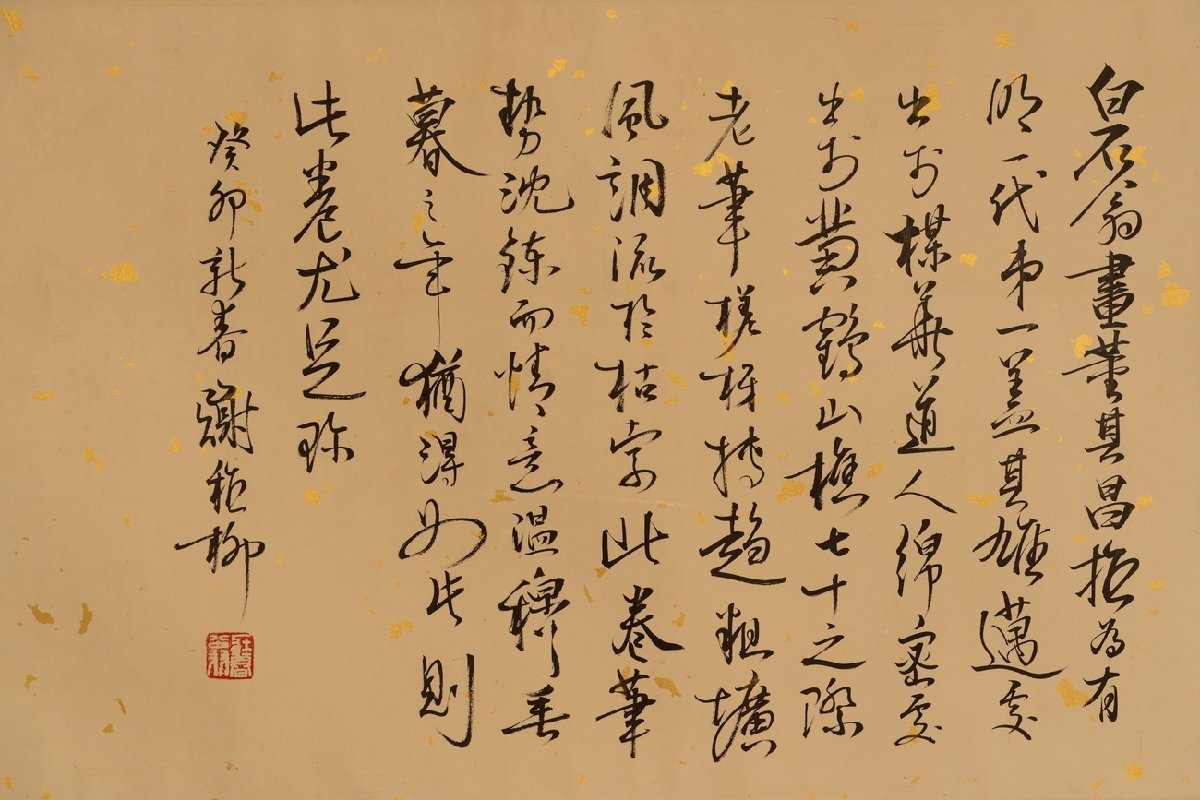 白石翁畫董其昌推為有
明一代第一蓋其雄邁處
出於梅華道人綿密處
出於黃鶴山樵七十之際
老筆槎枒轉趨粗壙
風調流於枯率此卷筆
勢沈鍊而情意溫穆垂
暮之年猶得如此則
此卷尤足珍
癸卯新春謝稚柳